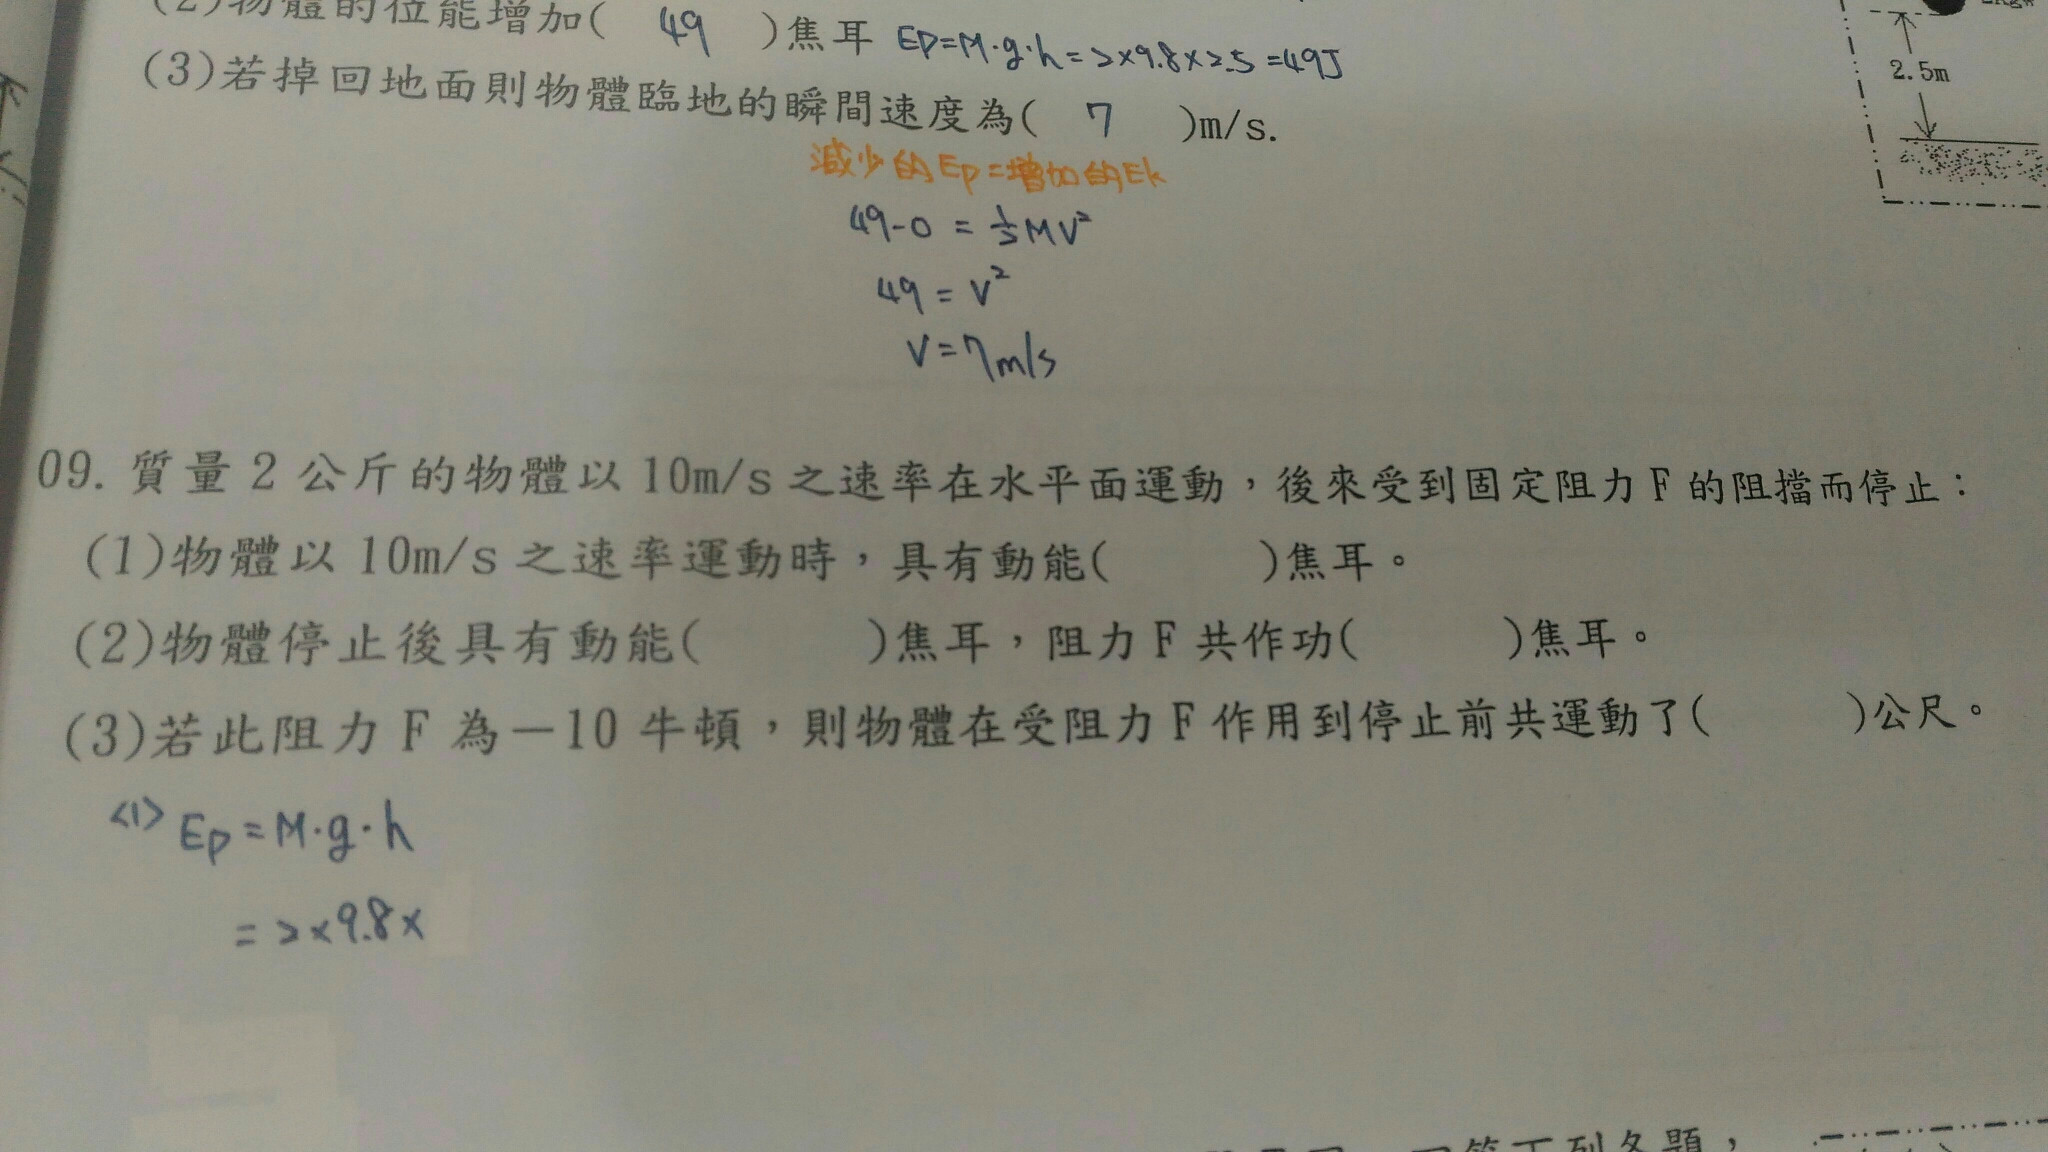 (2)物體的位能增加( 49 )焦耳 Ep=M·g·h=2×9.8×2.5=49J
(3)若掉回地面則物體臨地的瞬間速度為( 7 )m/s.
2.5m
減少的Ep=增加的Ek
49-0=½MV²
49=V²
V=7m/s
09.質量2公斤的物體以10m/s之速率在水平面運動，後來受到固定阻力F的阻擋而停止：
(1)物體以10m/s之速率運動時，具有動能( )焦耳。
(2)物體停止後具有動能( )焦耳，阻力F共作功( )焦耳。
(3)若此阻力F為－10牛頓，則物體在受阻力F作用到停止前共運動了( )公尺。
<1> Ep=M·g·h
=2×9.8×
下列各題，